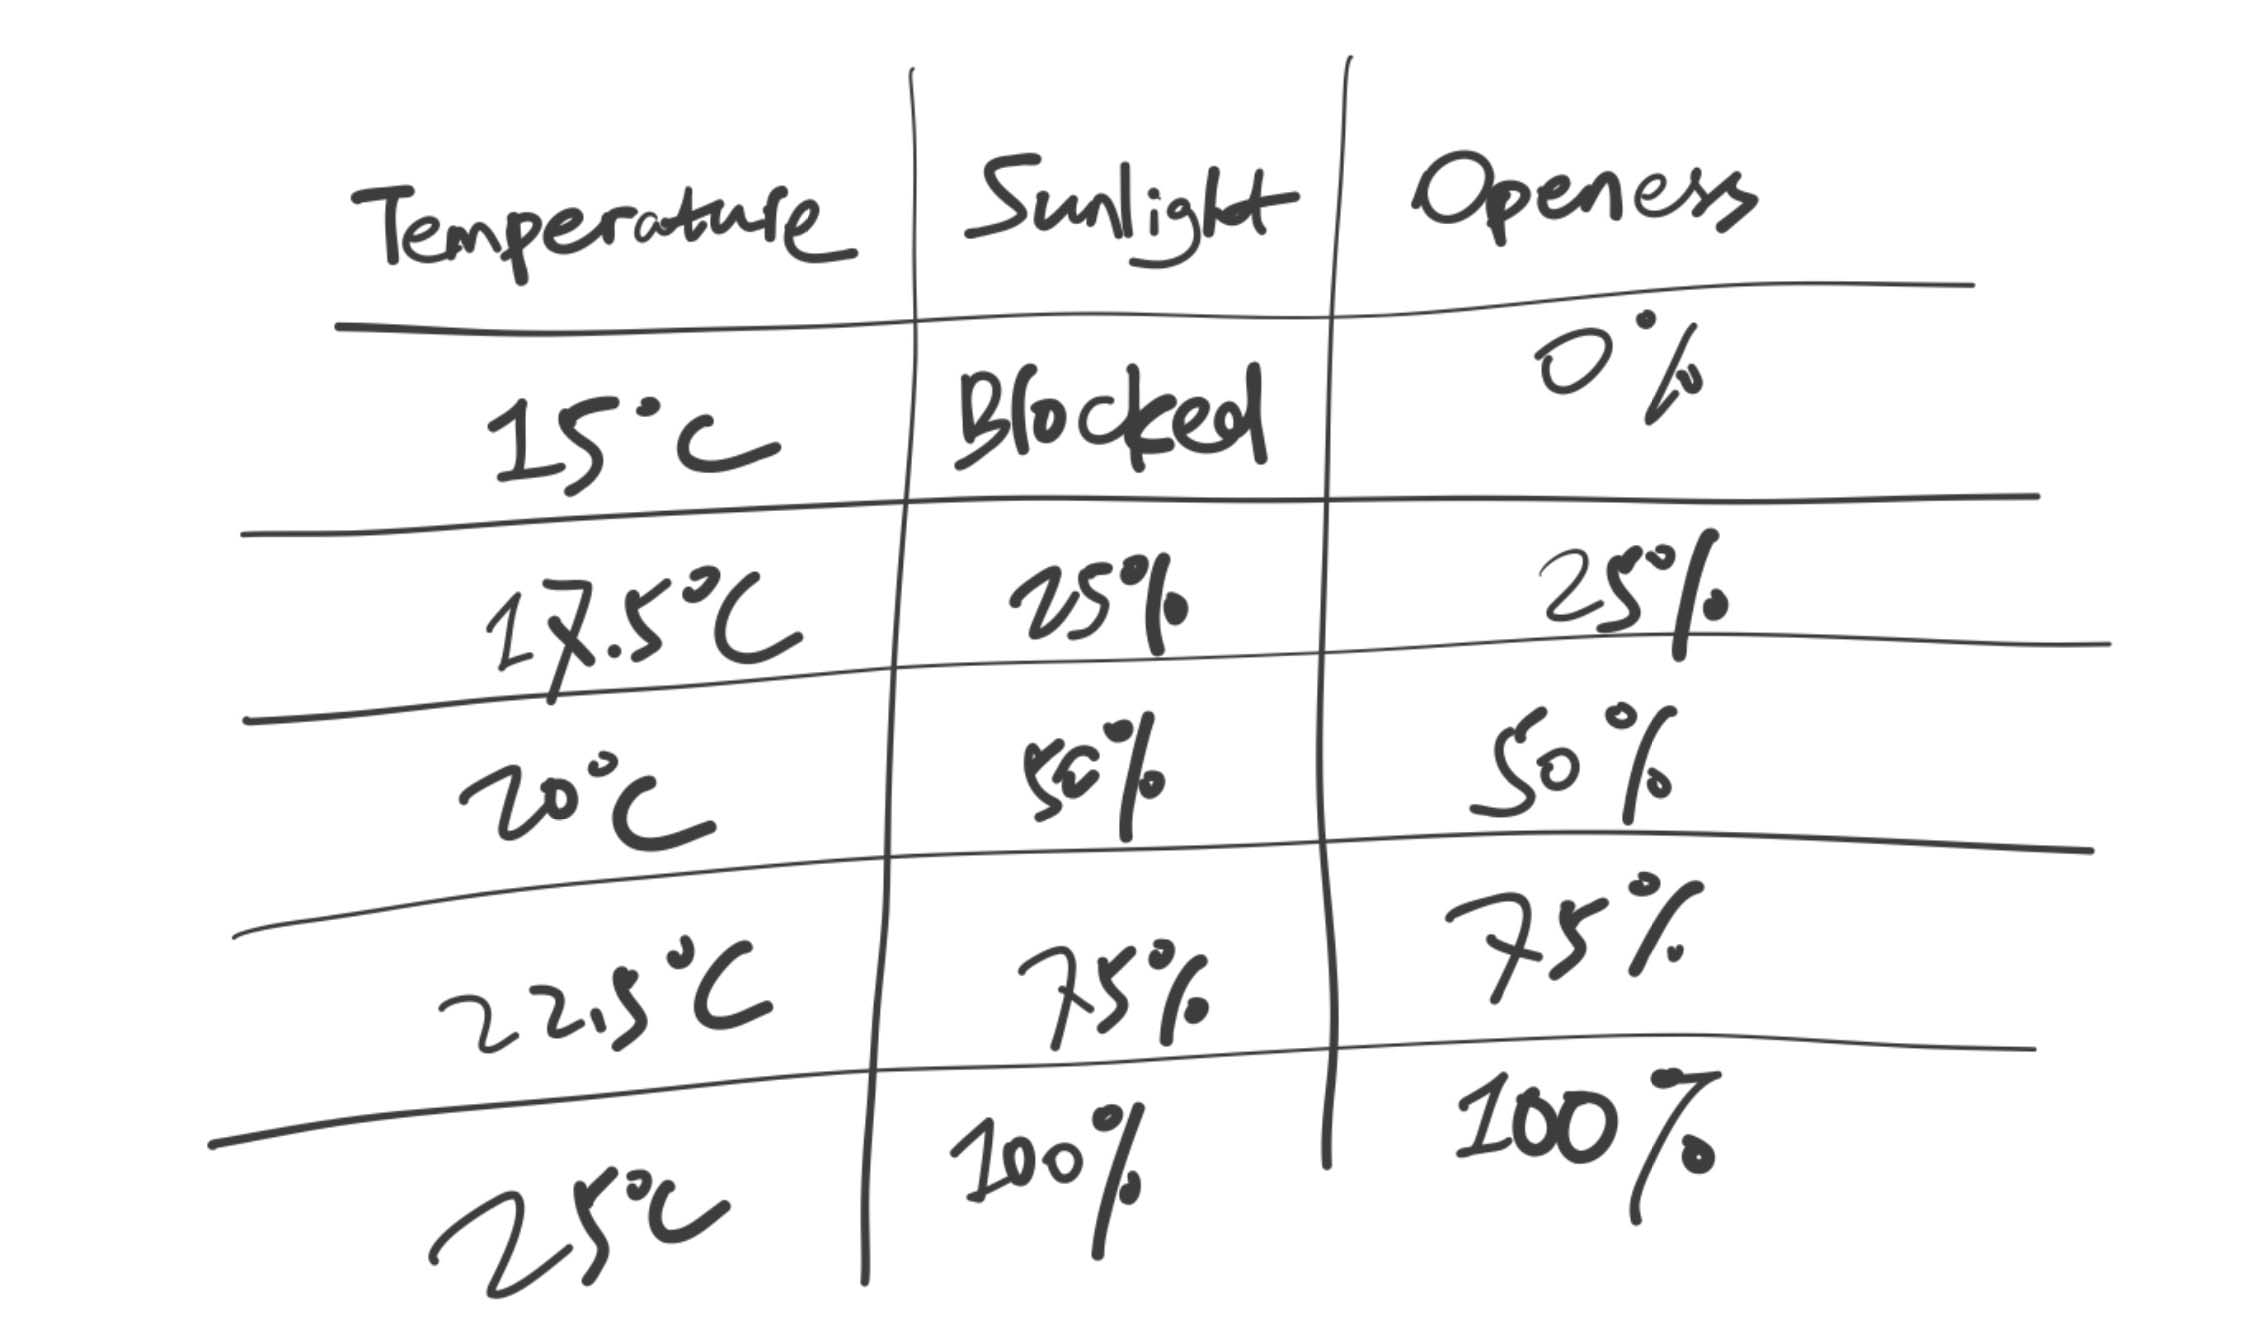 Temperature Sunlight Openess
15°C Blocked 0%
17.5°C 25% 25%
20°C 50% 50%
22.5°C 75% 75%
25°C 100% 100%